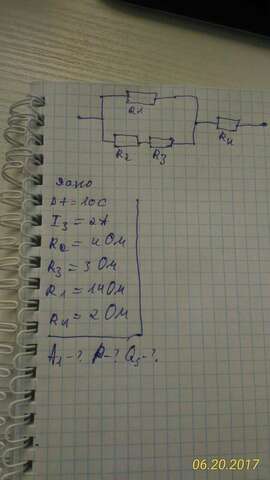 R1
R2 R3
R4
Дано
Δt=10С
I3=2А
R2=4Ом
R3=3Ом
R1=14Ом
R4=2Ом
A1-? P-? Q3-?
06.20.2017